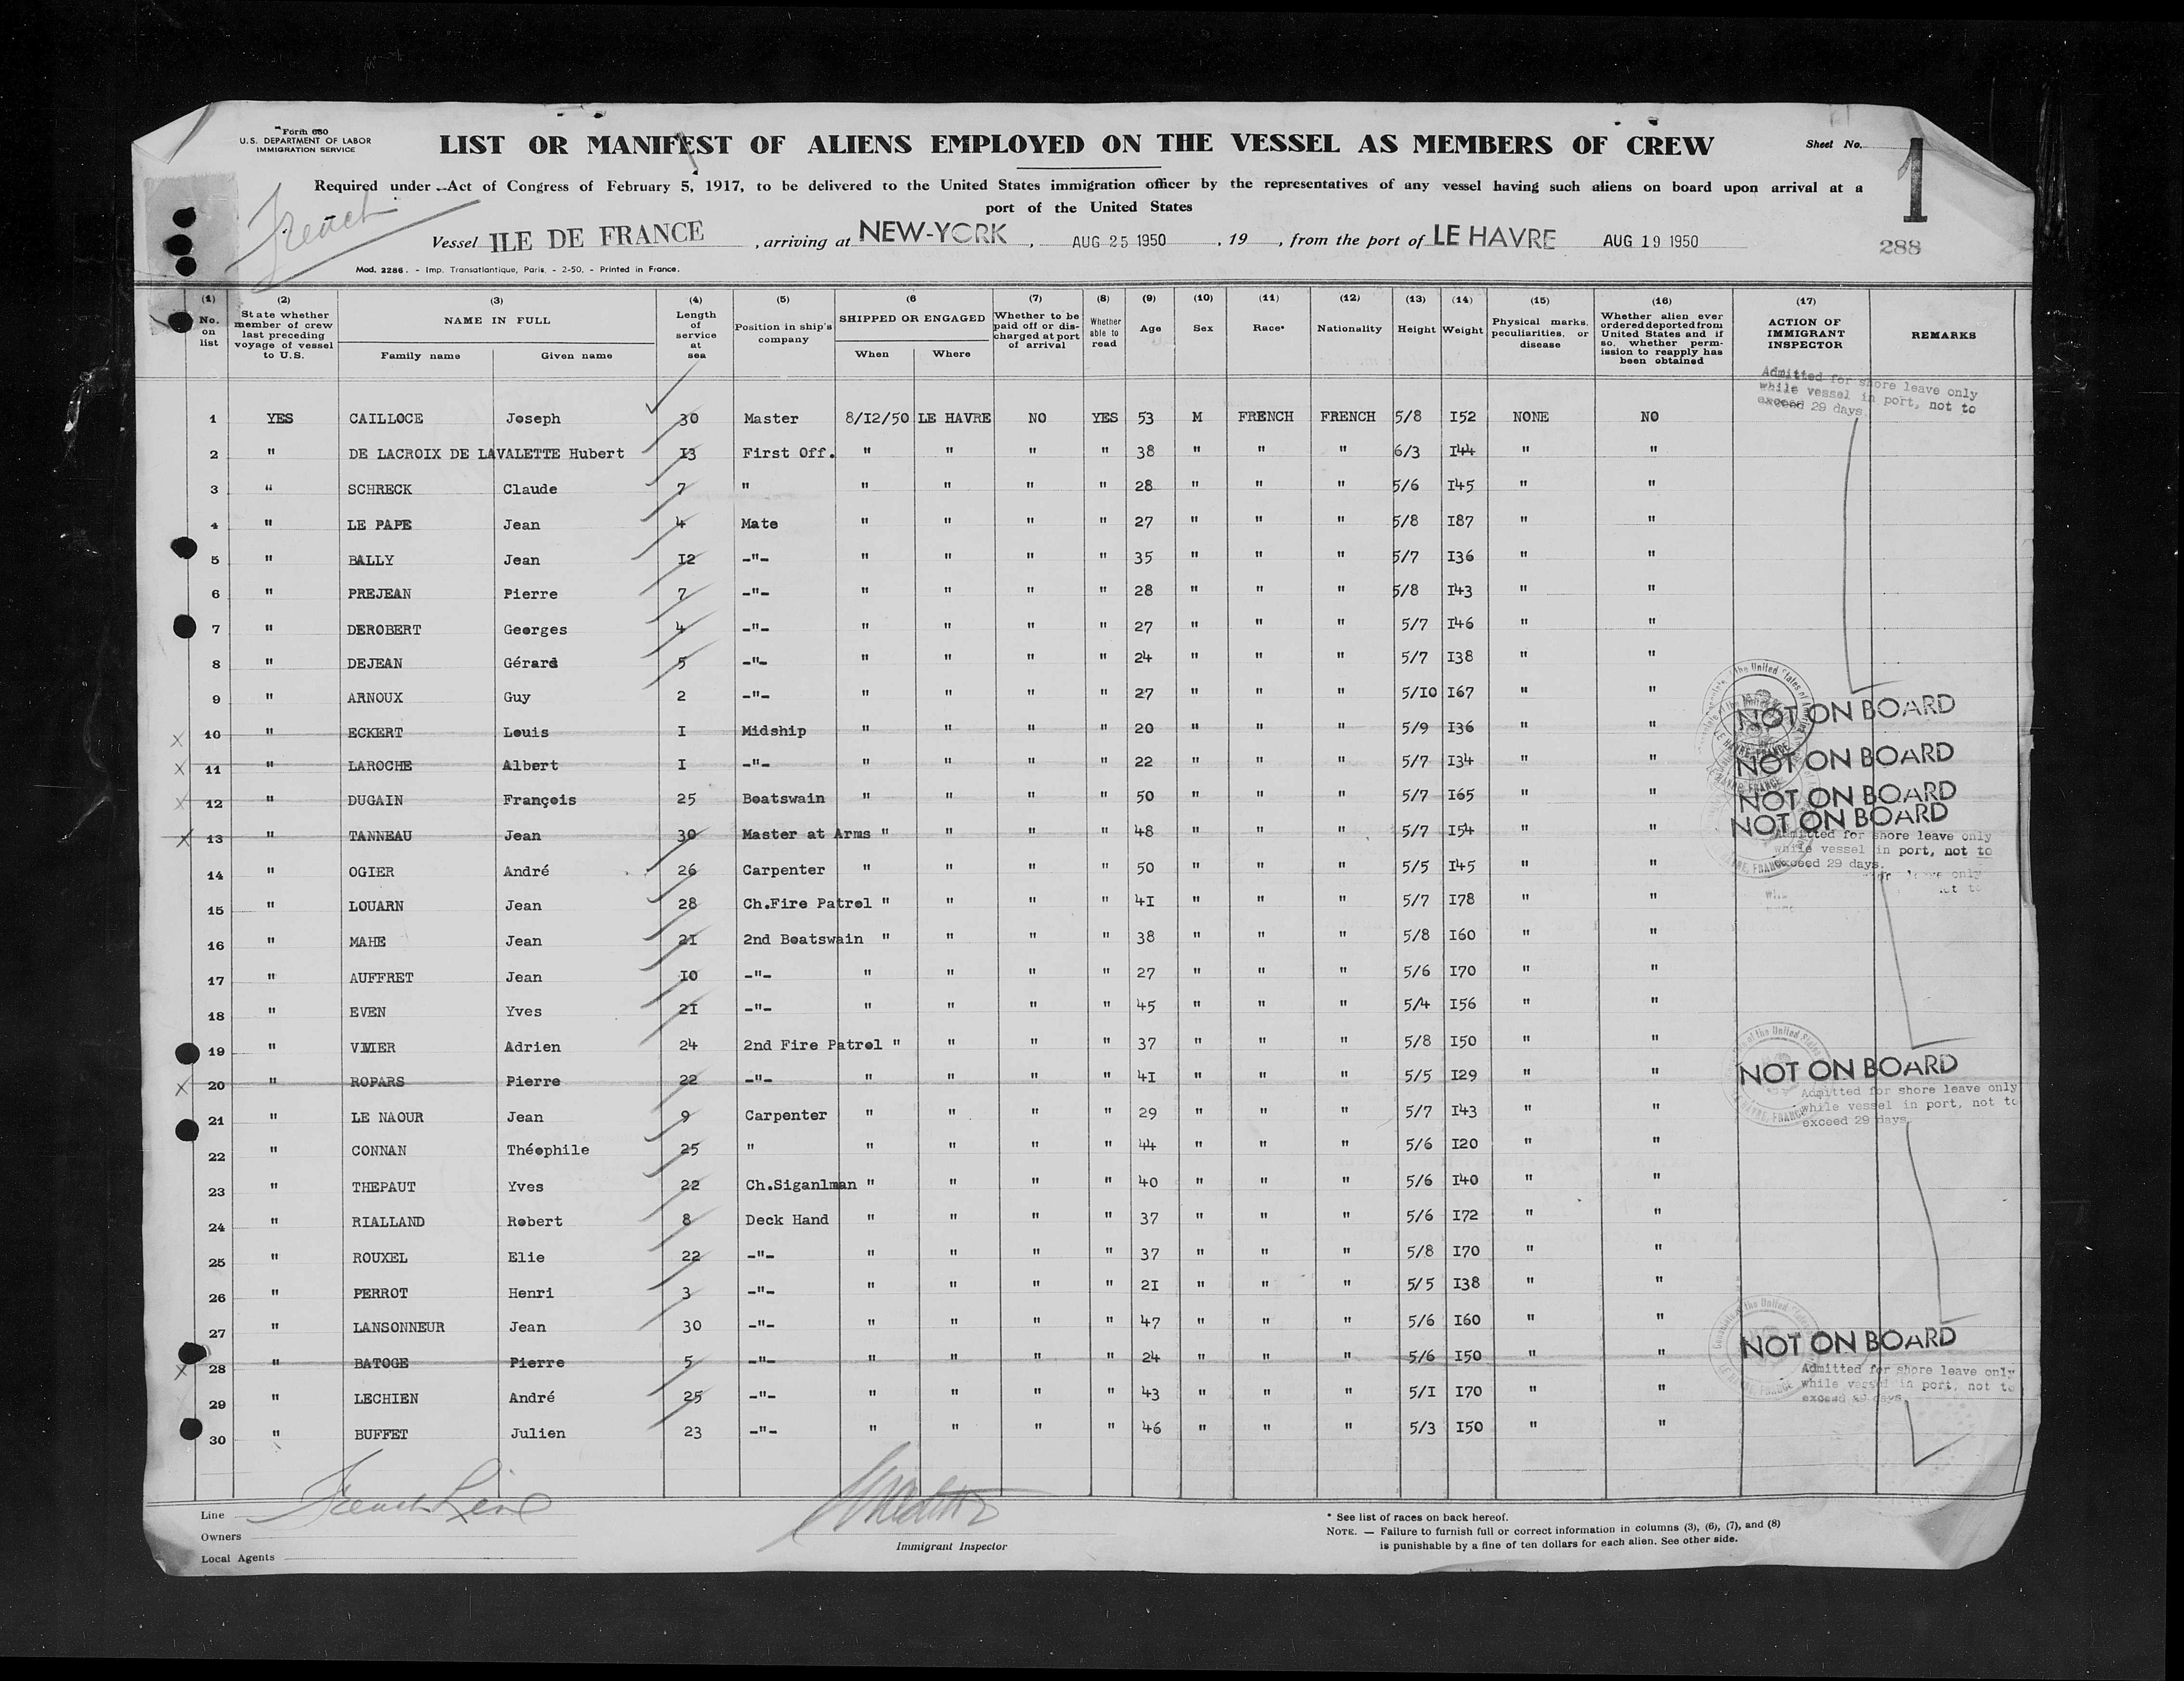 Form 680
U.S. DEPARTMENT OF LABOR
IMMIGRATION SERVICE
LIST OR MANIFEST OF ALIENS EMPLOYED ON THE VESSEL AS MEMBERS OF CREW
Sheet No. 1
Required under Act of Congress of February 5, 1917, to be delivered to the United States immigration officer by the representatives of any vessel having such aliens on board upon arrival at a
port of the United States
French
Vessel ILE DE FRANCE , arriving at NEW-YORK , AUG 25 1950 , 19 , from the port of LE HAVRE AUG 19 1950
288
Mod. 2286. - Imp. Transatlantique, Paris. - 2-50. - Printed in France.
(1) No. on list
(2) State whether member of crew last preceding voyage of vessel to U.S.
(3) NAME IN FULL Family name Given name
(4) Length of service at sea
(5) Position in ship's company
(6 SHIPPED OR ENGAGED When Where
(7) Whether to be paid off or discharged at port of arrival
(8) Whether able to read
(9) Age
(10) Sex
(11) Race*
(12) Nationality
(13) Height
(14) Weight
(15) Physical marks, peculiarities, or disease
(16) Whether alien ever ordered deported from United States and if so, whether permission to reapply has been obtained
(17) ACTION OF IMMIGRANT INSPECTOR
REMARKS
Admitted for shore leave only
while vessel in port, not to
exceed 29 days.
1 YES CAILLOCE Joseph 30 Master 8/I2/50 LE HAVRE NO YES 53 M FRENCH FRENCH 5/8 I52 NONE NO
2 " DE LACROIX DE LAVALETTE Hubert I3 First Off. " " " " 38 " " " 6/3 I44 " "
3 " SCHRECK Claude 7 " " " " " 28 " " " 5/6 I45 " "
4 " LE PAPE Jean 4 Mate " " " " 27 " " " 5/8 I87 " "
5 " BALLY Jean I2 -"- " " " " 35 " " " 5/7 I36 " "
6 " PREJEAN Pierre 7 -"- " " " " 28 " " " 5/8 I43 " "
7 " DEROBERT Georges 4 -"- " " " " 27 " " " 5/7 I46 " "
8 " DEJEAN Gérard 5 -"- " " " " 24 " " " 5/7 I38 " "
9 " ARNOUX Guy 2 -"- " " " " 27 " " " 5/I0 I67 " "
X 10 " ECKERT Louis I Midship " " " " 20 " " " 5/9 I36 " " NOT ON BOARD
X 11 " LAROCHE Albert I -"- " " " " 22 " " " 5/7 I34 " " NOT ON BOARD
X 12 " DUGAIN François 25 Boatswain " " " " 50 " " " 5/7 I65 " " NOT ON BOARD
X 13 " TANNEAU Jean 30 Master at Arms " " " " 48 " " " 5/7 I54 " " NOT ON BOARD
Admitted for shore leave only
while vessel in port, not to
exceed 29 days.
14 " OGIER André 26 Carpenter " " " " 50 " " " 5/5 I45 " "
15 " LOUARN Jean 28 Ch.Fire Patrol " " " " 4I " " " 5/7 I78 " "
16 " MAHE Jean 2I 2nd Boatswain " " " " 38 " " " 5/8 I60 " "
17 " AUFFRET Jean I0 -"- " " " " 27 " " " 5/6 I70 " "
18 " EVEN Yves 2I -"- " " " " 45 " " " 5/4 I56 " "
19 " Adrien 24 2nd Fire Patrol " " " " 37 " " " 5/8 I50 " "
X 20 " ROPARS Pierre 22 -"- " " " " 4I " " " 5/5 I29 " " NOT ON BOARD
Admitted for shore leave only
while vessel in port, not to
exceed 29 days.
21 " LE NAOUR Jean 9 Carpenter " " " " 29 " " " 5/7 I43 " "
22 " CONNAN Théophile 25 " " " " " 44 " " " 5/6 I20 " "
23 " THEPAUT Yves 22 Ch.Siganlman " " " " 40 " " " 5/6 I40 " "
24 " RIALLAND Robert 8 Deck Hand " " " " 37 " " " 5/6 I72 " "
25 " ROUXEL Elie 22 -"- " " " " 37 " " " 5/8 I70 " "
26 " PERROT Henri 3 -"- " " " " 2I " " " 5/5 I38 " "
27 " LANSONNEUR Jean 30 -"- " " " " 47 " " " 5/6 I60 " "
X 28 " BATOGE Pierre 5 -"- " " " " 24 " " " 5/6 I50 " " NOT ON BOARD
Admitted for shore leave only
while vessel in port, not to
exceed 29 days
29 " LECHIEN André 25 -"- " " " " 43 " " " 5/I I70 " "
30 " BUFFET Julien 23 -"- " " " " 46 " " " 5/3 I50 " "
Line French Line
Owners
Local Agents
Immigrant Inspector
* See list of races on back hereof.
NOTE. — Failure to furnish full or correct information in columns (3), (6), (7), and (8)
is punishable by a fine of ten dollars for each alien. See other side.